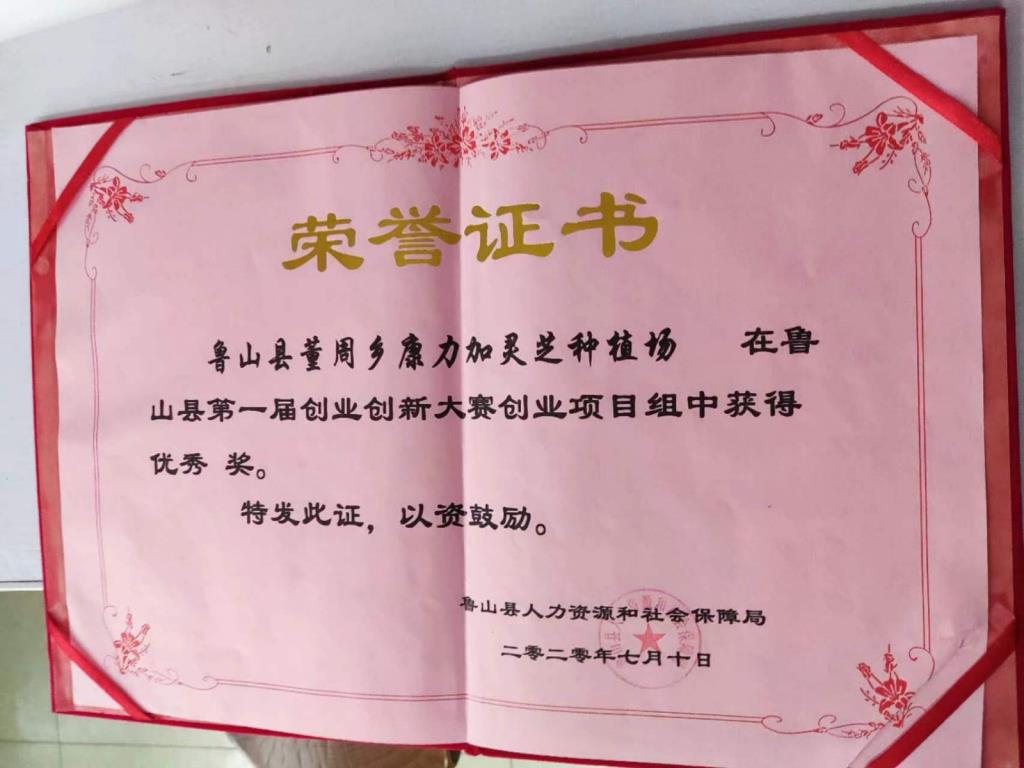 荣誉证书
鲁山县董周乡康力加灵芝种植场 在鲁
山县第一届创业创新大赛创业项目组中获得
优秀 奖。
特发此证，以资鼓励。
鲁山县人力资源和社会保障局
二零二零年七月十日